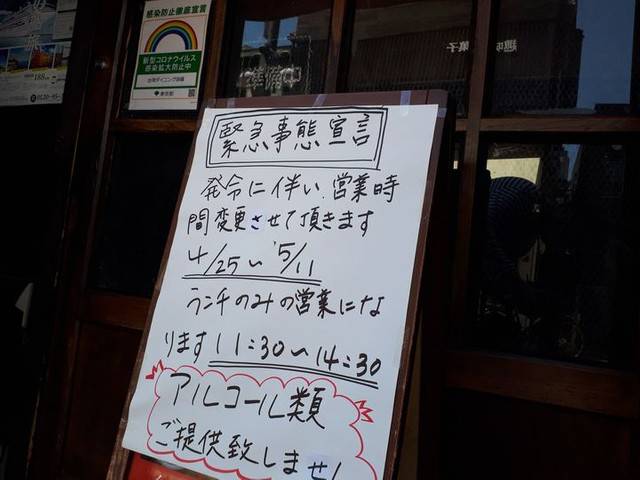 感染防止徹底宣言
新型コロナウイルス
感染拡大防止中
東京都
緊急事態宣言
発令に伴い、営業時
間変更させて頂きます
4/25〜5/11
ランチのみの営業にな
ります11:30〜14:30
アルコール類
ご提供致しませ